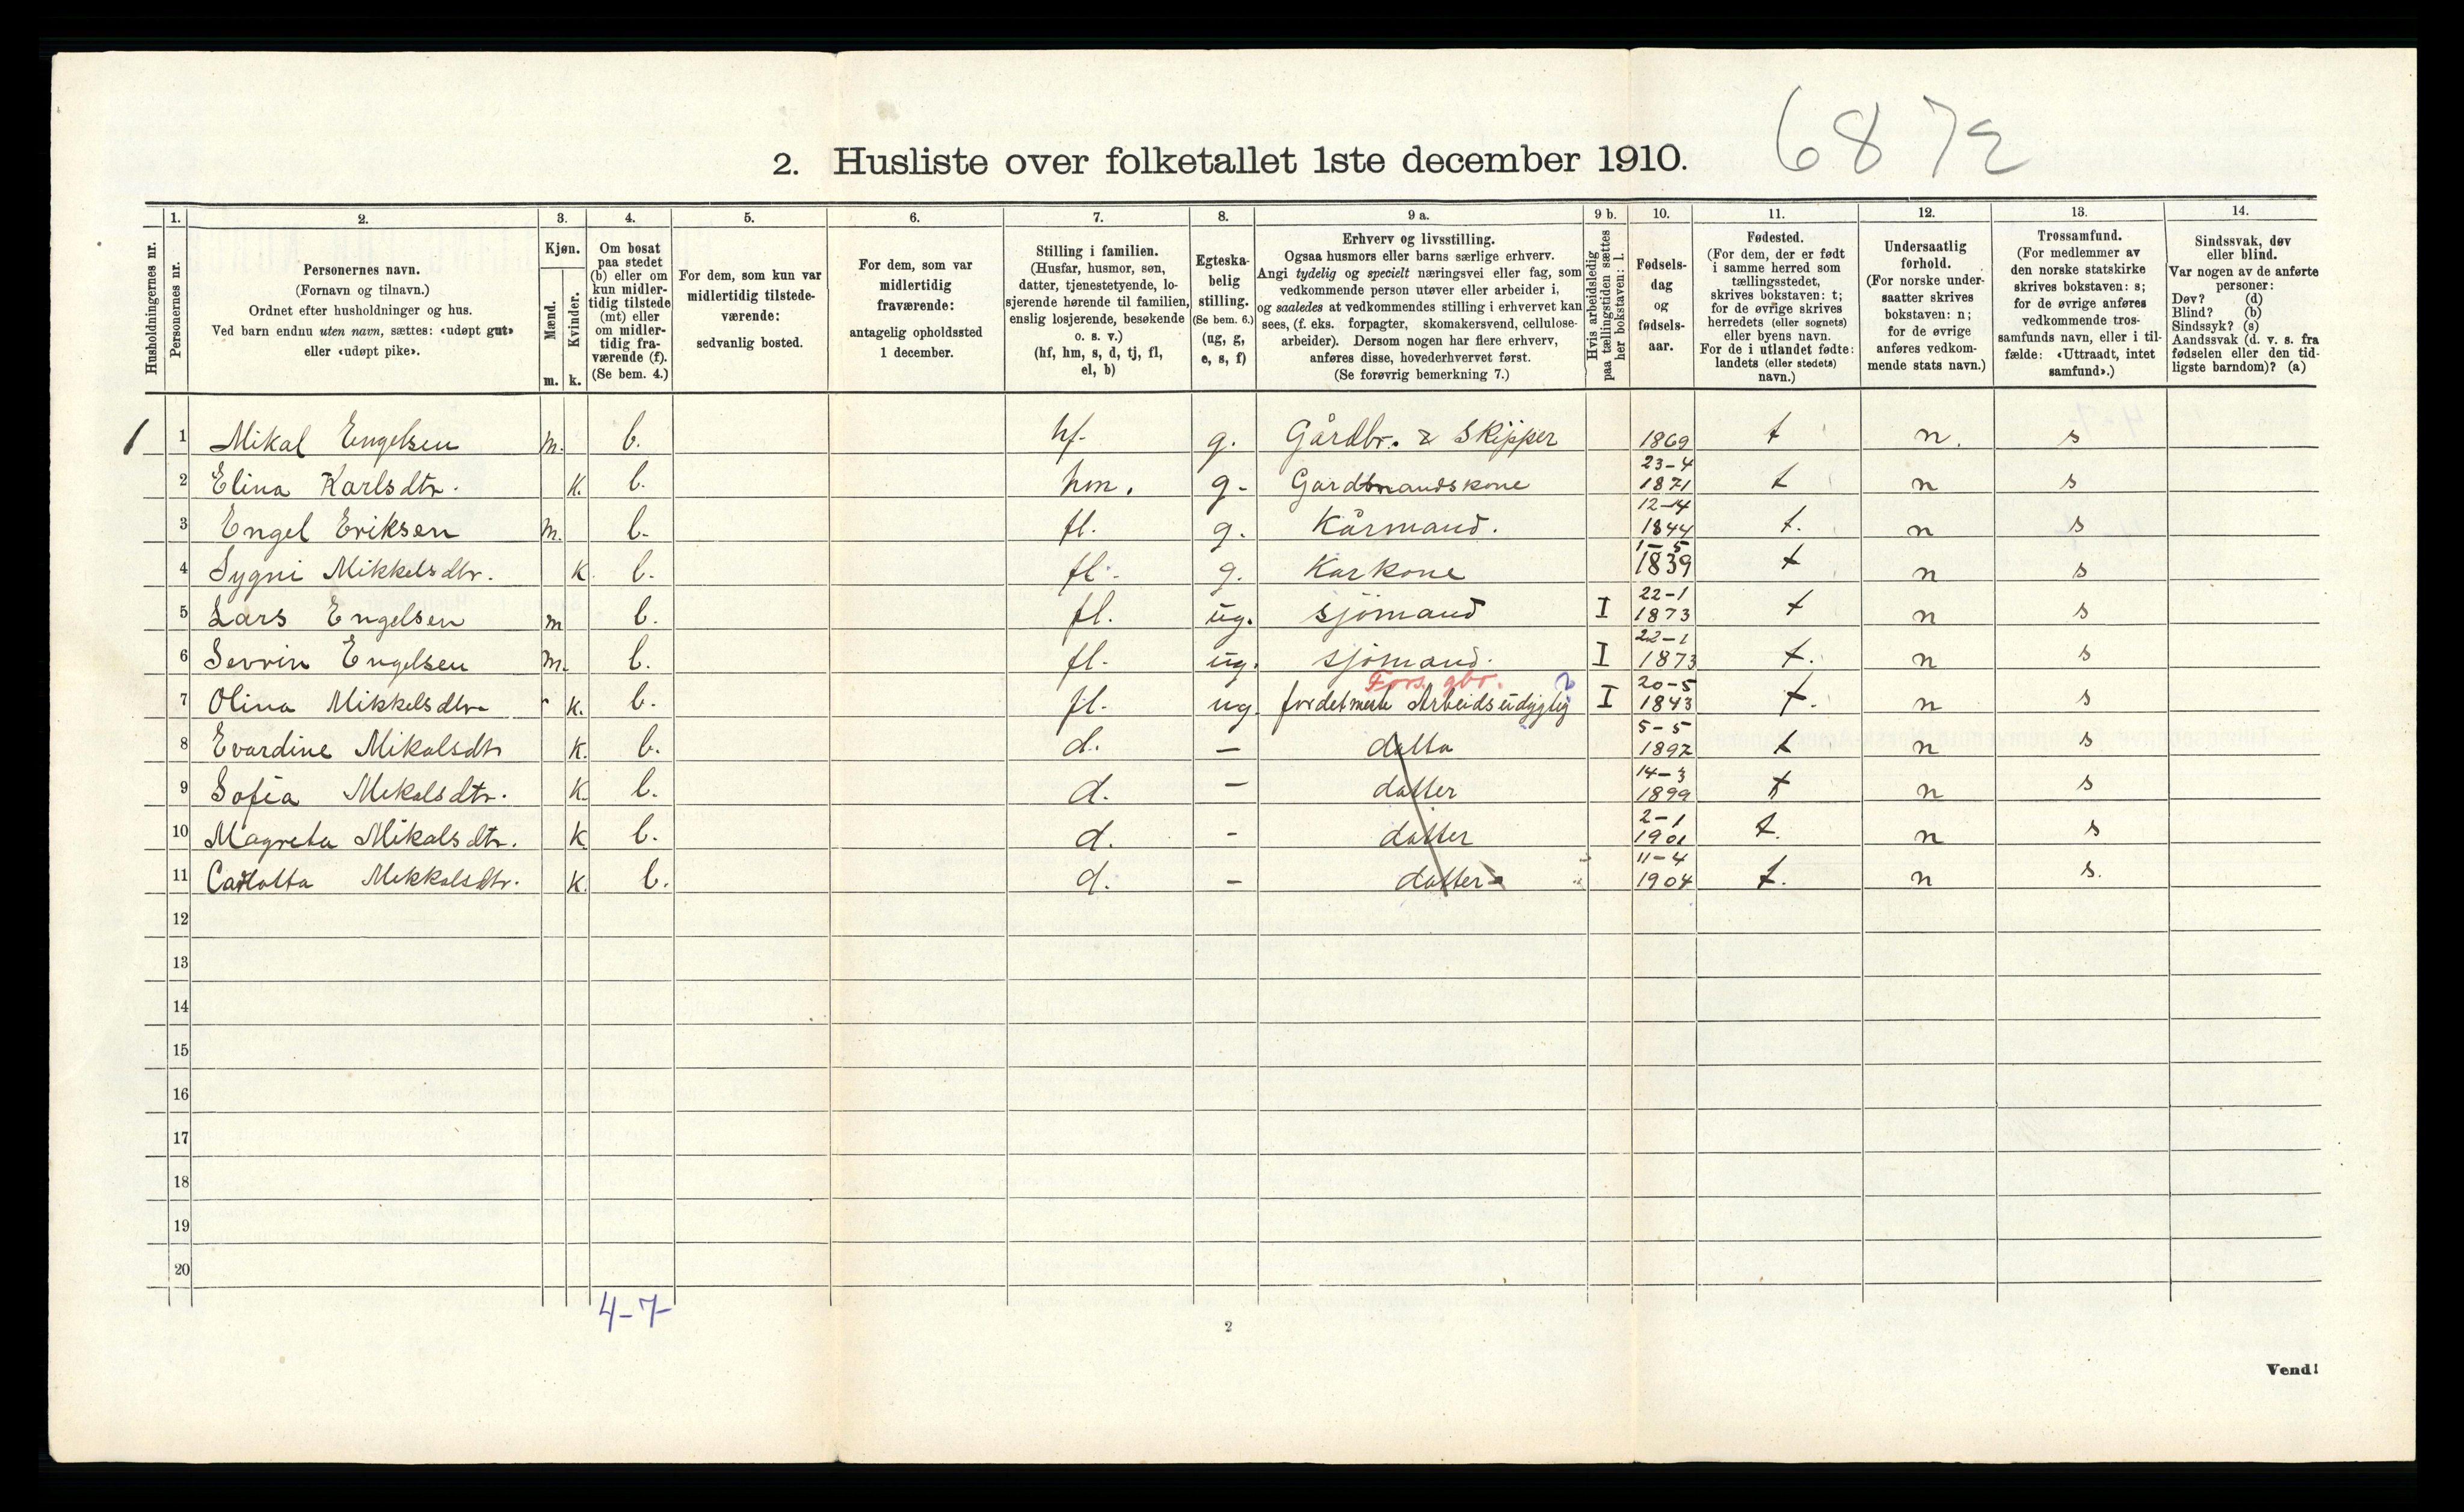 6872
2. Husliste over folketallet 1ste december 1910.
Husholdningernes nr.
1.
Personernes nr.
2.
Personernes navn.
(Fornavn og tilnavn.)
Ordnet efter husholdninger og hus.
Ved barn endnu uten navn, sættes: «udøpt gut»
eller «udøpt pike».
3.
Kjøn.
Mænd.
m.
Kvinder.
k.
4.
Om bosat
paa stedet
(b) eller om
kun midler-
tidig tilstede
(mt) eller
om midler-
tidig fra-
værende (f).
(Se bem. 4.)
5.
For dem, som kun var
midlertidig tilstede-
værende:
sedvanlig bosted.
6.
For dem, som var
midlertidig
fraværende:
antagelig opholdssted
1 december.
7.
Stilling i familien.
(Husfar, husmor, søn,
datter, tjenestetyende, lo-
sjerende hørende til familien,
enslig losjerende, besøkende
o. s. v.)
(hf, hm, s, d, tj, fl,
el, b)
8.
Egteska-
belig
stilling.
(Se bem. 6.)
(ug, g,
e, s, f)
9 a.
Erhverv og livsstilling.
Ogsaa husmors eller barns særlige erhverv.
Angi tydelig og specielt næringsvei eller fag, som
vedkommende person utøver eller arbeider i,
og saaledes at vedkommendes stilling i erhvervet kan
sees, (f. eks. forpagter, skomakersvend, cellulose-
arbeider). Dersom nogen har flere erhverv,
anføres disse, hovederhvervet først.
(Se forøvrig bemerkning 7.)
9 b.
Hvis arbeidsledig
paa tællingstiden sættes
her bokstaven: l.
10.
Fødsels-
dag
og
fødsels-
aar.
11.
Fødested.
(For dem, der er født
i samme herred som
tællingsstedet,
skrives bokstaven: t;
for de øvrige skrives
herredets (eller sognets)
eller byens navn.
For de i utlandet fødte:
landets (eller stedets)
navn.)
12.
Undersaatlig
forhold.
(For norske under-
saatter skrives
bokstaven: n;
for de øvrige
anføres vedkom-
mende stats navn.)
13.
Trossamfund.
(For medlemmer av
den norske statskirke
skrives bokstaven: s;
for de øvrige anføres
vedkommende tros-
samfunds navn, eller i til-
fælde: «Uttraadt, intet
samfund».)
14.
Sindssvak, døv
eller blind.
Var nogen av de anførte
personer:
Døv? (d)
Blind? (b)
Sindssyk? (s)
Aandssvak (d. v. s. fra
fødselen eller den tid-
ligste barndom)? (a)
1 1 Mikal Engelsen m. b. hf. g. Gårdbr. & Skipper 1869 t n. s
2 Elina Karlsdtr. k. b. hm. g. Gardmandskone 23-4 1871 t n s
3 Engel Eriksen m. b. fl. g. Kårmand. 12-14 1844 t. n s
4 Sygni Mikkelsdtr. K. b. fl. g. Karkone 1-5 1839 t n s
5 Lars Engelsen m b. fl. ug. sjömand I 22-1 1873 t n s
6 Sevrin Engelsen m. b. fl. ug. sjömand. I 22-1 1873 t. n s
Fors. gbr. 2
7 Olina Mikkelsdtr k. b. fl. ug. fordetmeste Arbeidsudygtig I 20-5 1843 t. n s
8 Evardine Mikalsdtr k. b. d. — datta 5-5 1897 t n s
9 Sofia Mekalsdtr. K. b. d. — datter 14-3 1899 t n s
10 Magreta Mikalsdtr. K b. d. - datter 2-1 1901 t. n s
11 Carlotta Mekkalsdtr. K. b. d. - datter 11-4 1904 t. n s.
12
13
14
15
16
17
18
19
20
4-7-
2
Vend!